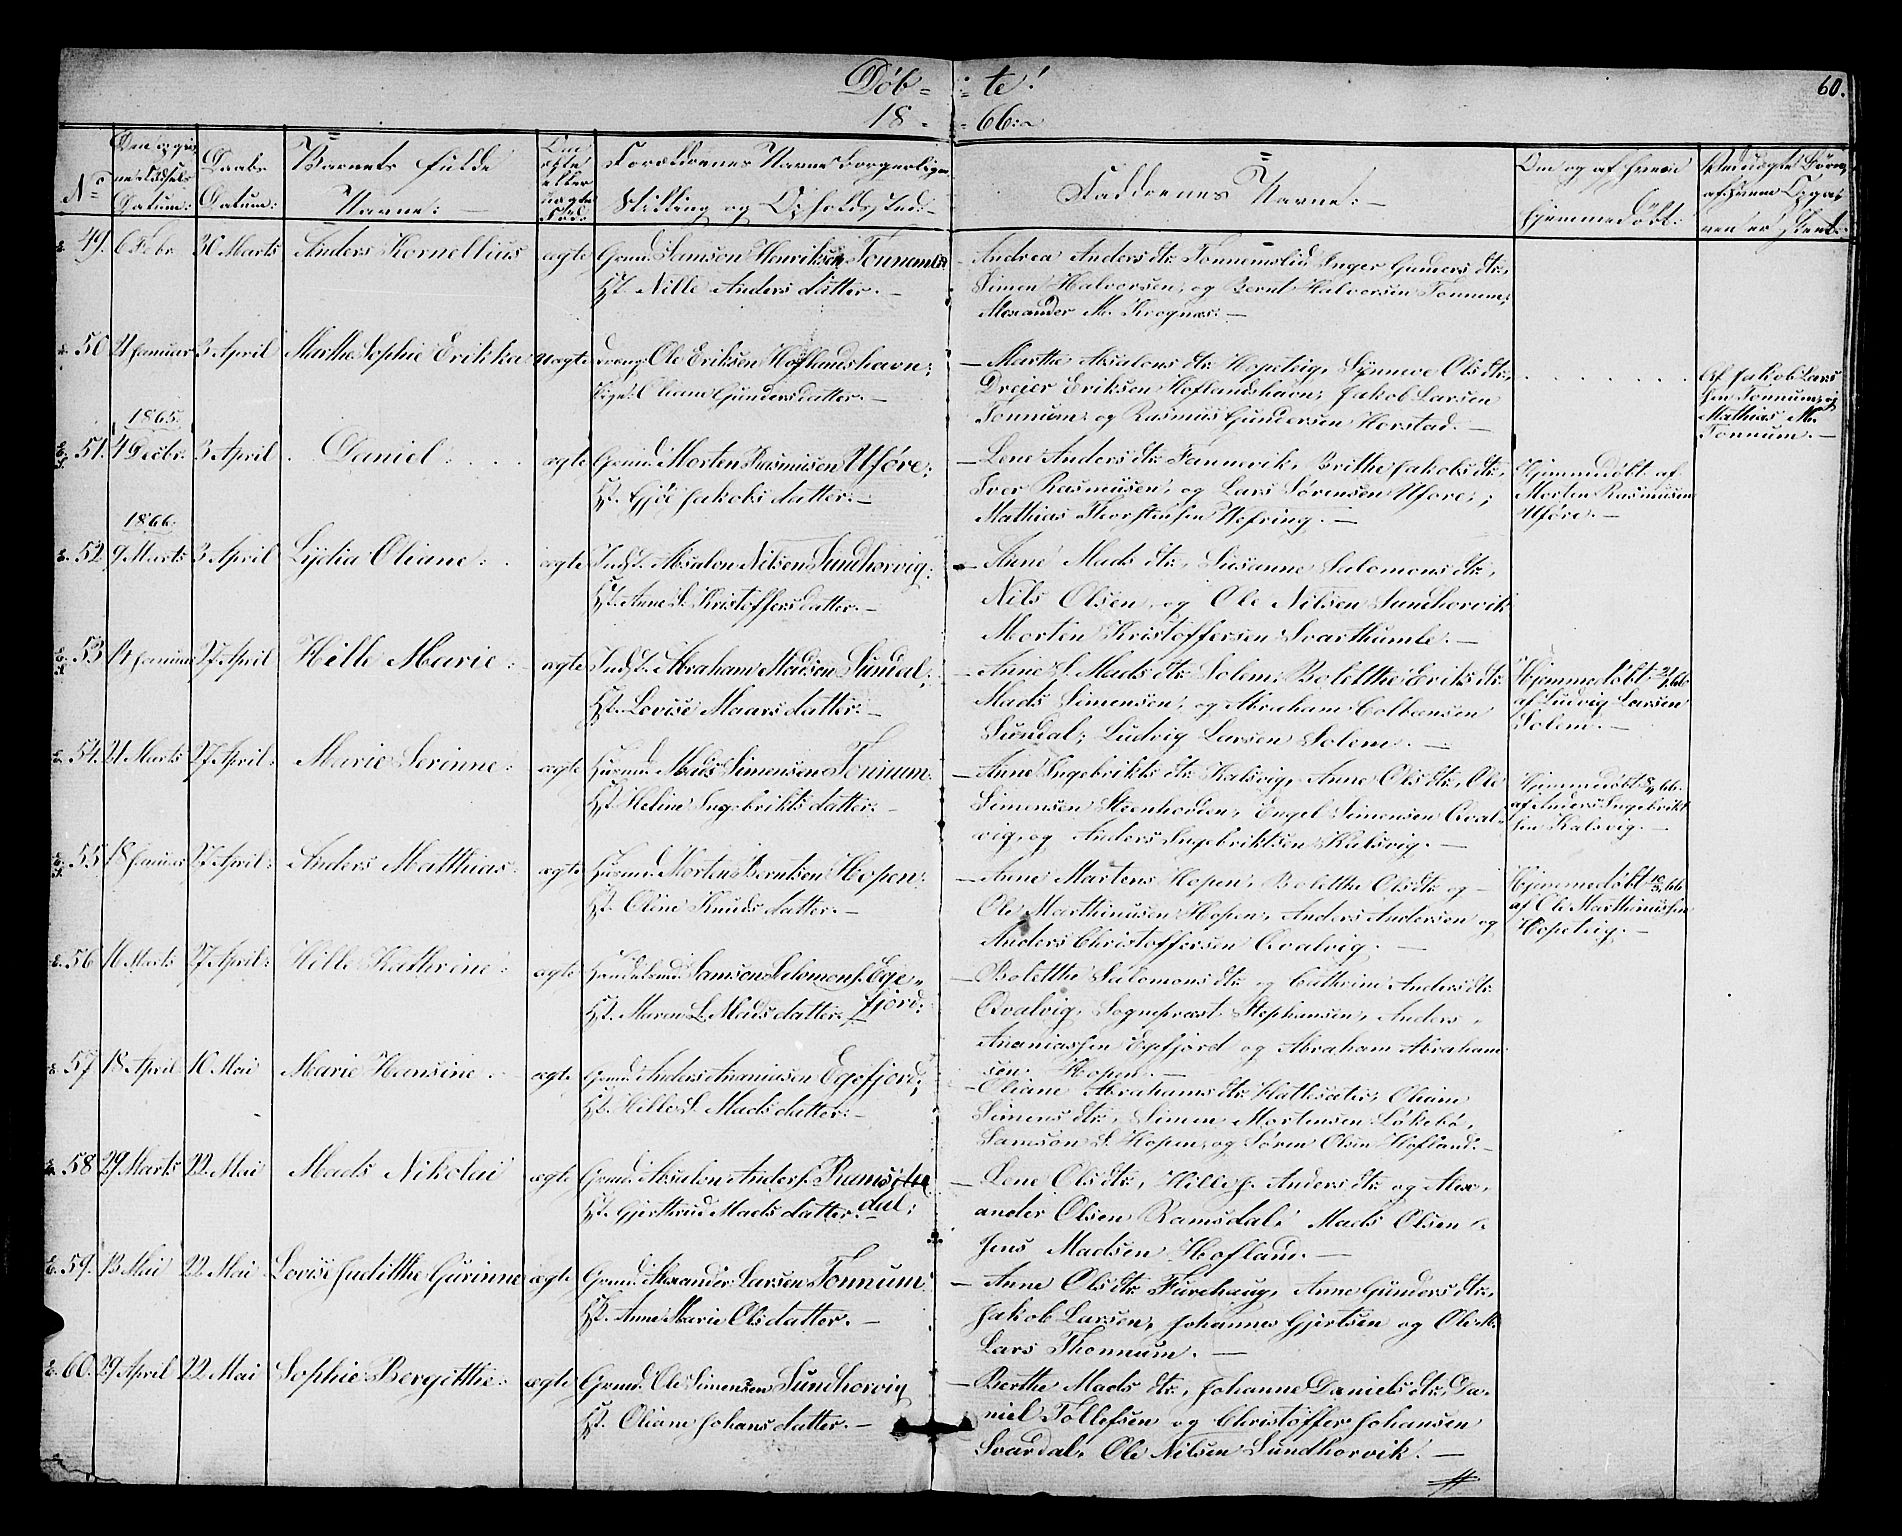 Døb- -te!
60.
18- -66.
No
Datum:
Daabs Datum:
Barnets fulde Navne:
Forældrenes Navne Borgerlige Stilling og Opholdssted:
Faddrenes Navne:
Om og af hvem hjemmedøbt:
49. 6 Febr 30 Marts Anders Kornellius ægte Gmd. Samson Henriksen Tonnum
H. Nille Andersdatter.
Andrea Anders dtr. Tonnemslid, Inger Gunders dtr,
Simen Halvorsen, og Bernt Halvorsen Tonnum;
Alexander M. Krognæs.
50 21 Januar 3 April Marthe Sophie Erikka uægte Ole Eriksen Hoflandshavn;
Oliane Gundersdatter.
Marthe Absalons dtr. Hopeteig, Synneve Ols dtr,
Dreier Eriksen Hoflandshavn; Jakob Larsen
Tonnum; og Rasmus Gundersen Horstad.
Af Jakob Lars
sen Tonnum; og
Mathias M.
Tonnum.
1865.
51. 4 Decbr. 3 April Daniel ægte Gmd. Morten Rasmusen Uføre;
H. Gjøe Jakobsdatter.
Lene Anders dtr. Fannevik, Brithe Jakobs dtr,
Iver Rasmusen, og Lars Sørensen Uføre;
Mathias Thorstensen Nefring.
Hjemmedøbt af
Morten Rasmusen
Uføre.
1866.
52. 9 Marts 3 April Lydia Oliane ægte Inds. Absalon Nilsen Sundhorvig;
H. Anne S. Kristoffersdatter.
Anne Mads dtr, Susanne Salomons dtr,
Nils Olsen, og Ole Nilsen Sundhorvik
Morten Kristoffersen Svarthumle.
53 14 Januar 27 April Hille Marie ægte Inds. Abraham Madsen Sundal;
H. Lovise Maarsdatter.
Anne S. Mads dtr. Solem; Bolette Eriks dtr.
Mads Simensen, og Abraham Colbensen
Sundal; Ludvig Larsen Solem.
Hjemmedøbt 21/1 66
af Ludvig Larsen
Solem.
54. 21 Marts 27 April: Marie Serinne ægte Husmd. Mads Simensen Tonnum.
H. Heline Ingebriktsdatter.
Anne Ingebrikts dtr. Kalsvig, Anne Ols dtr, Ole
Simensen Steenhorden, Engel Simensen Qval-
vig, og Anders Ingebriktsen Kalsvig.
Hjemmedøbt 66.
af Anders Ingebrikt
sen Kalsvig.
55 18 Januar 27 April: Anders Matthias ægte Husmd. Morten Berntsen Hopen.
H. Oline Knudsdatter.
Anne Martens Hopen, Bolette Olsdtr og
Ole Marthinusen Hopen, Anders Andersen og
Anders Christoffersen Qvalvig.
Hjemmedøbt 66
af Ole Marthinussen
Hopeteig.
56 16 Marts 27 April: Hille Kathrine ægte Samson Salomons. Ege-
fjord;
H. Maren L. Madsdatter.
Bolette Salomons dtr og Cathrine Anders dtr
Qvalvig, Sognepræst Stephansen, Anders
Ananiassen Egefjord og Abraham Abraham
sen Hopen.
57 18 April 10 Mai Marie Hansine ægte Gmd. Anders Ananiasen Egefjord;
H. Hille S. Madsdatter.
Oliane Abrahams dtr. Hatlesæter, Oliane
Simens dtr, Simen Mortensen Løkebø,
Samson S. Hopen, og Søren Olsen Hofland.
58 29 Marts 22 Mai Mads Nikolai ægte Gmd. Absalon Anders. Rams
dal;
H. Gjerthrud Madsdatter.
Lene Ols dtr, Hille J. Anders dtr og Alex-
ander Olsen Ramsdal; Mads Olsen
Jens Madsen Hofland.
59. 13 Mai 22 Mai Lovise Judithe Gurinne ægte Gmd. Alexander Larsen Tonnum
H. Anne Marie Olsdatter.
Anne Ols dtr. Furehaug, Anne Gunders dtr,
Jakob Larsen, Johannes Gjertsen og Ole M.
Lars Thonnum.
60. 29 April 22 Mai Sophie Bergitthe ægte Gmd. Ole Simensen Sundhorvig
H. Oliane Johansdatter.
Berthe Mads dtr, Johanne Daniels dtr, Da-
niel Tollefsen og Christoffer Johansen
Svardal, Ole Nilsen Sundhorvik.